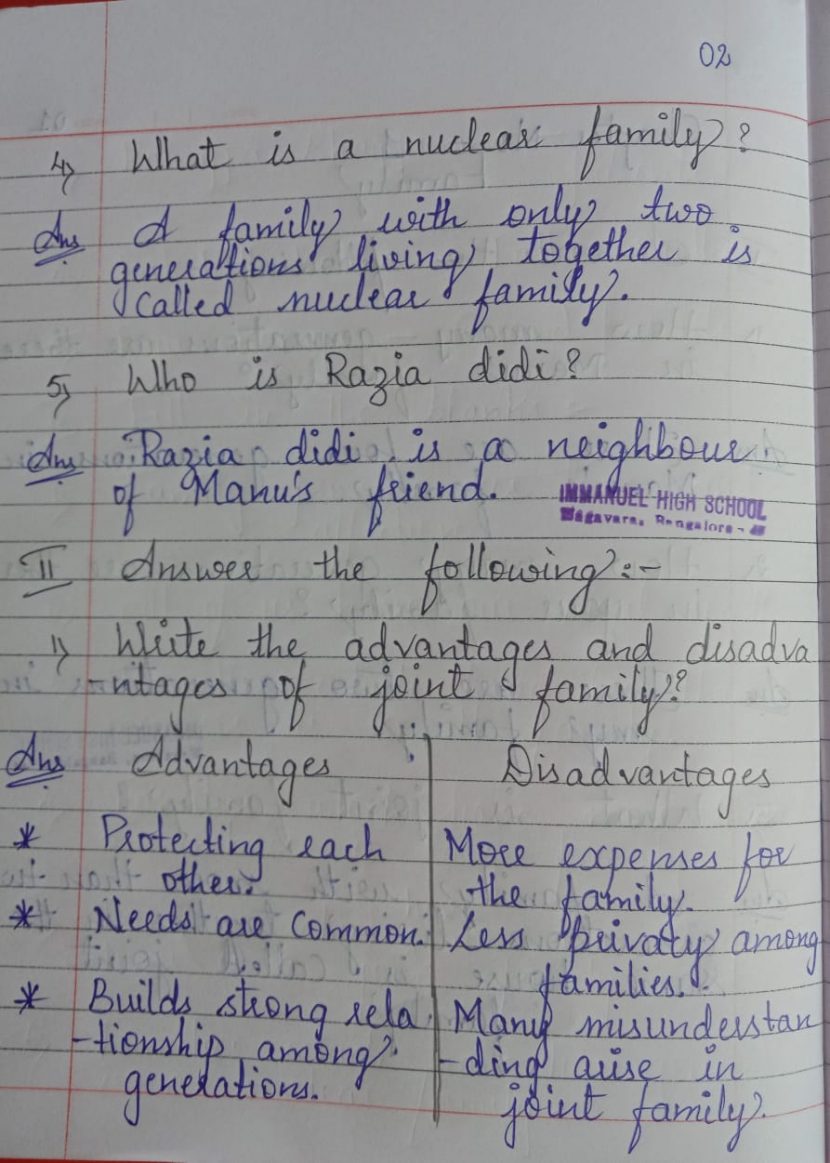 02
4) What is a nuclear family?
Ans A family with only two
generations living together is
called nuclear family.
5) Who is Razia didi?
Ans Razia didi is a neighbour
of Manu's friend.
IMMANUEL HIGH SCHOOL
Nagavara, Bangalore - 45
II Answer the following:-
1) Write the advantages and disadva
-ntages of joint family?
Ans Advantages Disadvantages
* Protecting each More expenses for
other. the family.
* Needs are common. Less privaty among
families.
* Builds strong rela Many misunderstan
-tionship among -ding arise in
generations. joint family.